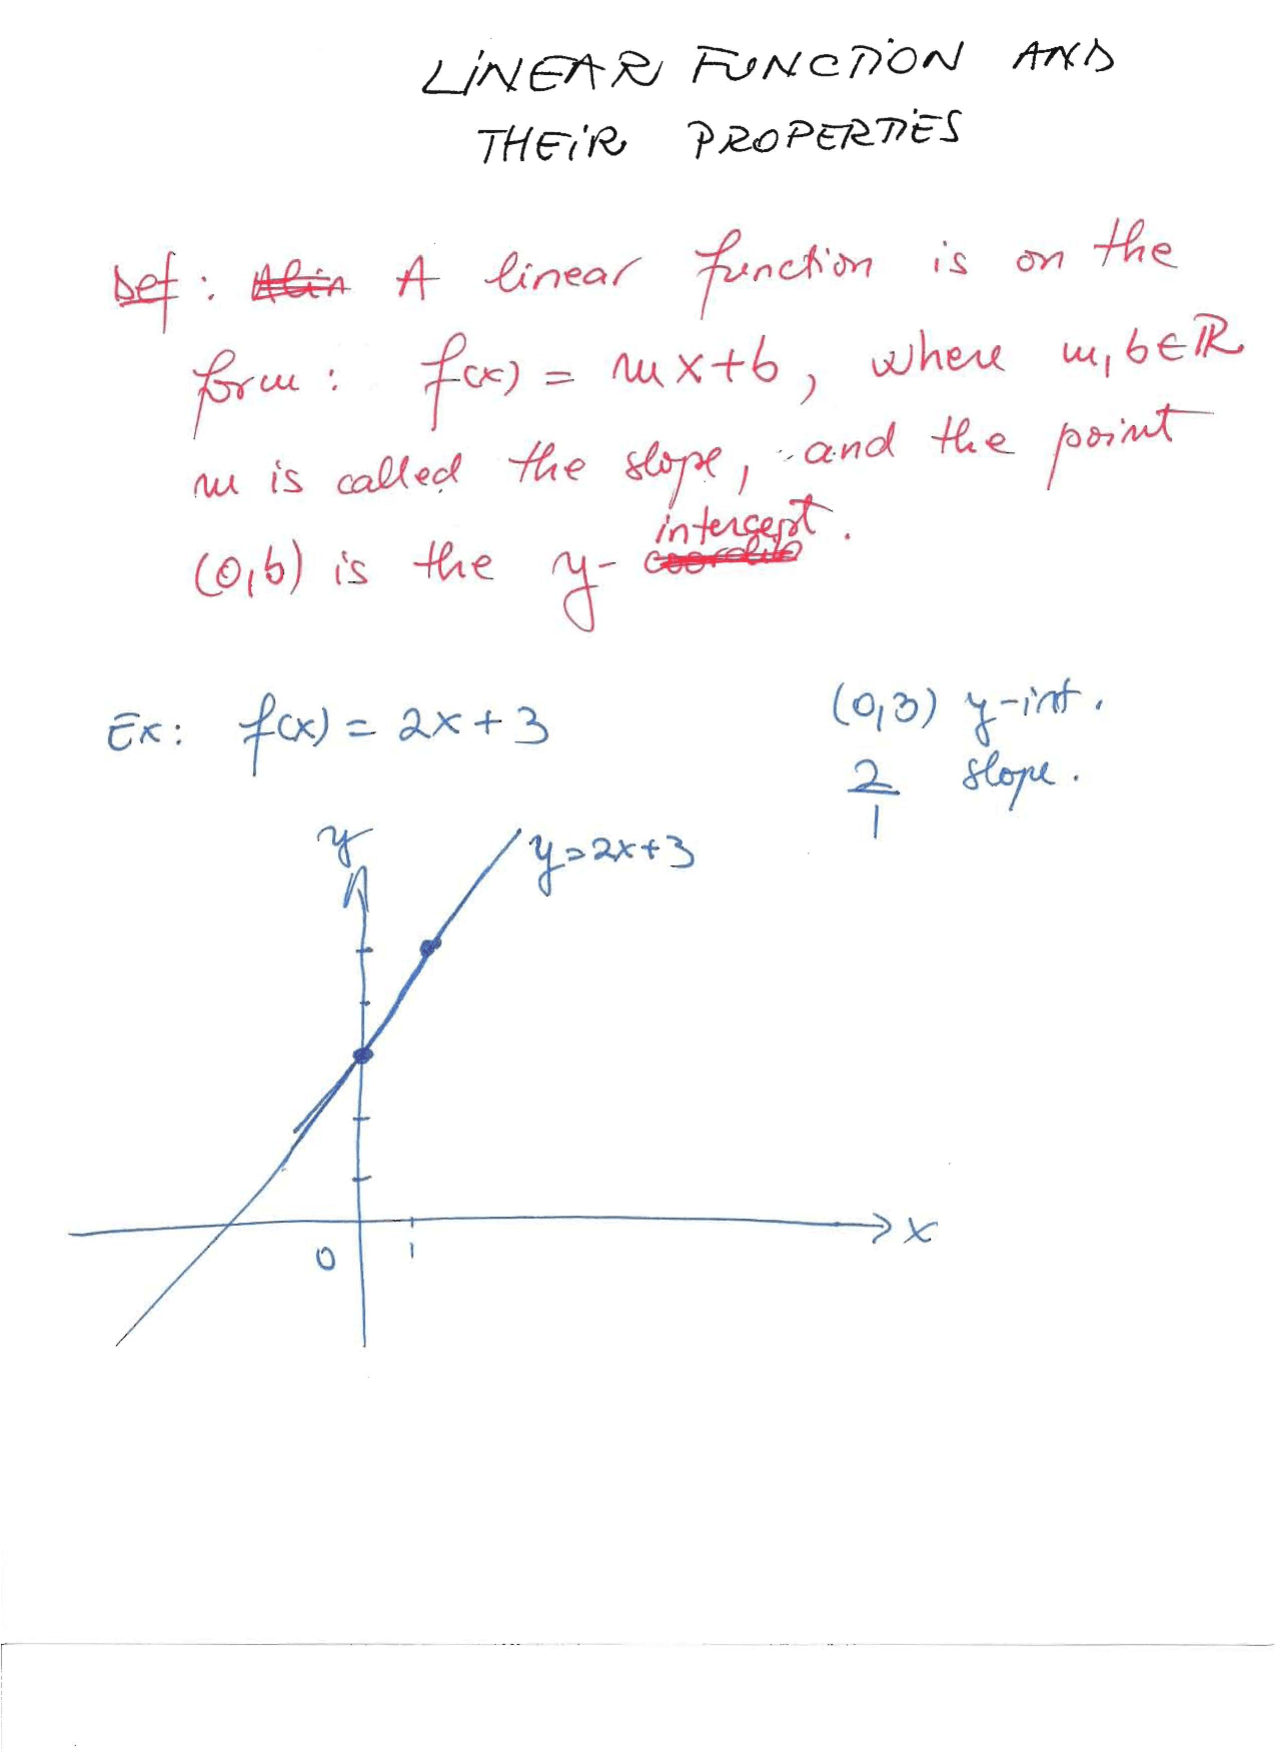 LINEAR FUNCTION AND
THEIR PROPERTIES
Def: A lin A linear function is on the
form: f(x) = mx+b, where m, b ∈ ℝ
m is called the slope, and the point
(0,b) is the y- intercept.
Ex: f(x) = 2x+3
(0,3) y-int.
2/1 slope.
y
y=2x+3
0
1
x